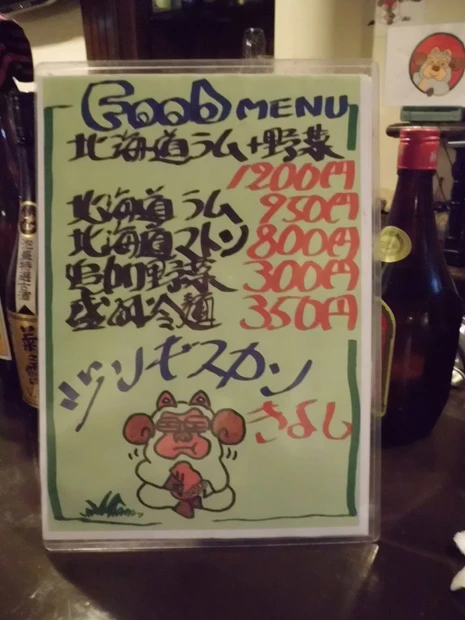 Food MENU
北海道ラム+野菜
1200円
北海道ラム 950円
北海道マトン 800円
追加野菜 300円
盛岡冷麺 350円
ジンギスカン
きよし